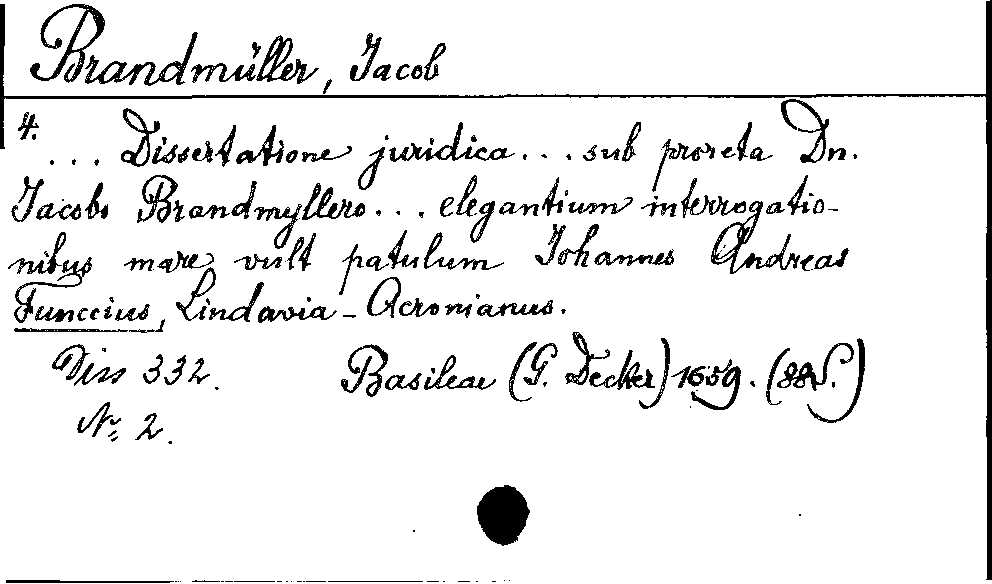 Brandmüller, Jacob
4.
... Dissertatione juridica... sub proreta Dn.
Jacobo Brandmyllero... elegantium interrogatio-
nibus mare vult patulum Johannes Andreas
Funccius, Lindavia-Acronianus.
Diss 332. Basileae (G. Decker) 1659. (88S.)
No 2.